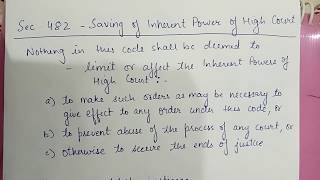 Sec 482 - Saving of Inherent Power of High Court
Nothing in this code shall be deemed to
- limit or affect the Inherent Powers of
High Court :-
a) to make such orders as may be necessary to
give effect to any order under this code, or
b) to prevent abuse of the process of any court, or
c) otherwise to secure the ends of justice